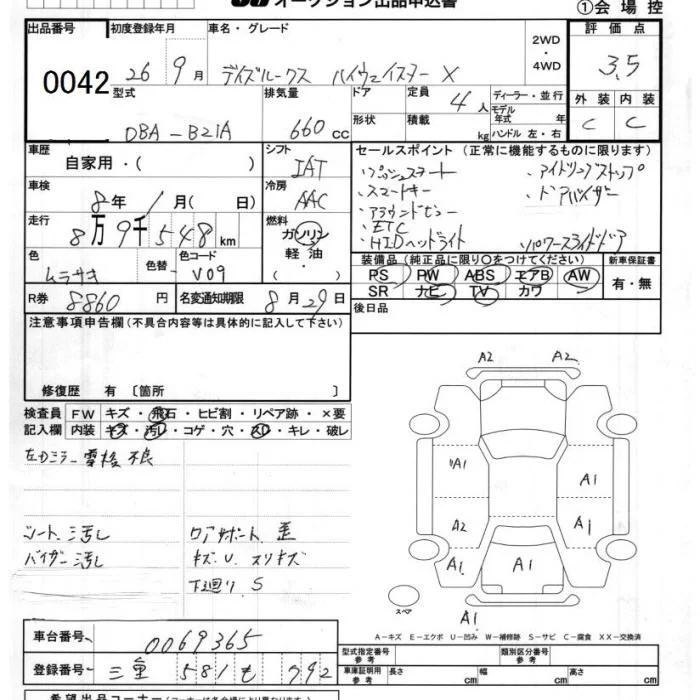 オークション出品申込書
①会場控
出品番号 初度登録年月 車名・グレード 2WD ・ 4WD 評価点
0042 26 9月 デイズルークス ハイウェイスター X 3.5
型式 排気量 ドア 定員 4人 ディーラー・並行 外装 内装
モデル年式 年
DBA-B21A 660cc 形状 積載 kg ハンドル 左・右 C C
車歴 自家用・( ) シフト IAT セールスポイント (正常に機能するものに限ります)
・プッシュスタート ・アイドリングストップ
車検 8年 1月( 日) 冷房 AAC ・スマートキー ・ドアバイザー
・アラウンドビュー
走行 8万9千548km 燃料 ガソリン・軽油・( ) ・ETC
・HIDヘッドライト ・パワースライドドア
色 ムラサキ 色替 色コード V09 装備品 (純正品に限り○をつけてください) 新車保証書
PS PW ABS エアB AW 有・無
R券 8860円 名変通知期限 8月29日 SR ナビ TV カワ
注意事項申告欄(不具合内容等は具体的に記入して下さい) 後日品
修復歴 有〔箇所 〕
検査員 FW キズ・飛石・ヒビ割・リペア跡・×要
記入欄 内装 キズ・汚レ・コゲ・穴・スレ・キレ・破レ
左Dミラー 電格 不良
シート、シミ汚レ コアサポート 歪
バイザー汚レ キズ、U、スリキズ
下廻り S
A2 A2
A1 A1
A2 A1
A1 A1
スペア A1
A-キズ E-エクボ U-凹み W-補修跡 S-サビ C-腐食 XX-交換済
車台番号 0069365 型式指定番号 参考 類別区分番号 参考
登録番号 三重 581 も 792 車庫証明用 参考 長さ cm 幅 cm 高さ cm
希望出品コーナー